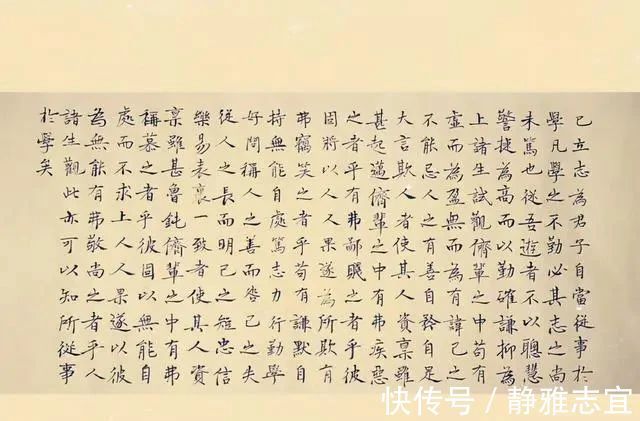 已立志為君子自當從事於
學凡學之不勤必其志之尚
未篤也從吾遊者不以聰慧
警捷為高而以勤確謙抑為
上諸生試觀儕輩之中苟有
虛而為盈無而為有諱己之
不能忌人之有善自矜自足
大言欺人者使其人資稟雖
甚起邁儕輩之中有弗疾惡
之者乎有弗鄙賤之者乎彼
固將以人人果遂為所欺有
弗竊笑之者乎苟有謙默自
持無能自處篤志力行勤學
好問稱人之善而咎己之失
從人之長而明己之短忠信
樂易表裏一致者使其人資
稟雖甚魯鈍儕輩之中有弗
稱慕之者乎彼固以無能自
處而不求上人人果遂以彼
為無能有弗敬尚之者乎人
諸生觀此亦可以知所從事
於學矣
快传号/静雅志宜